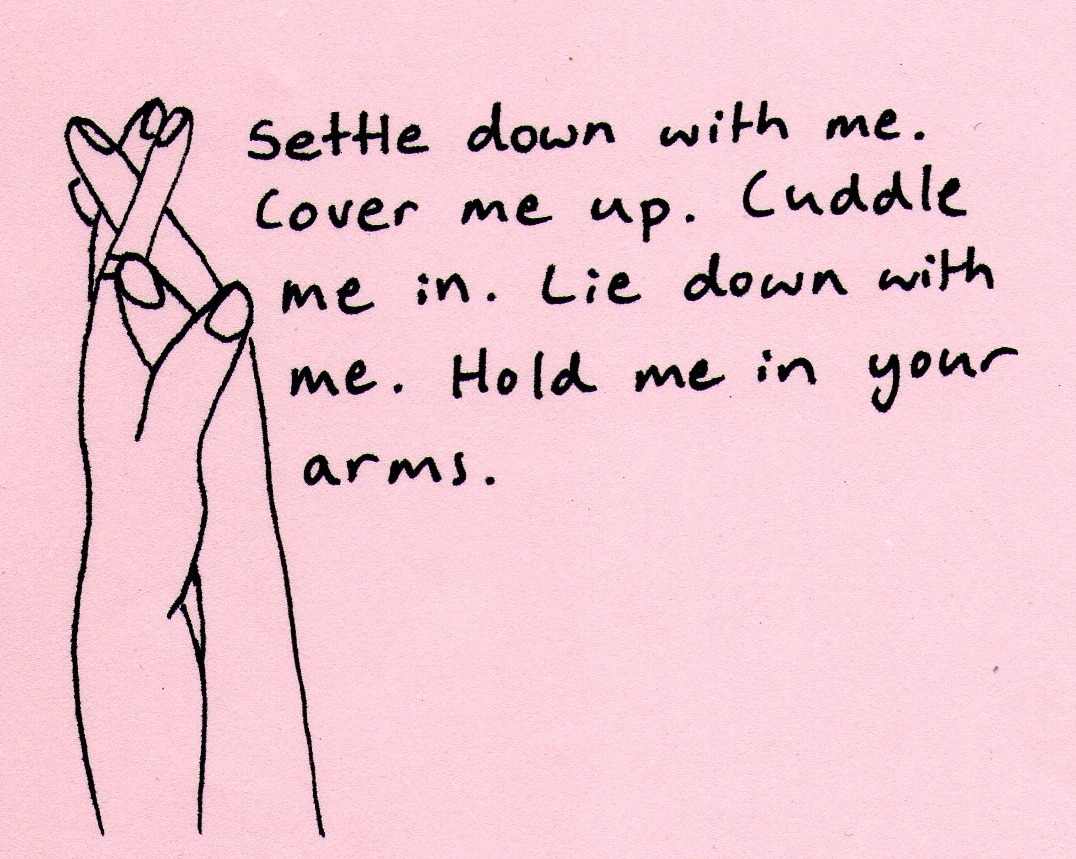 Settle down with me.
Cover me up. Cuddle
me in. Lie down with
me. Hold me in your
arms.